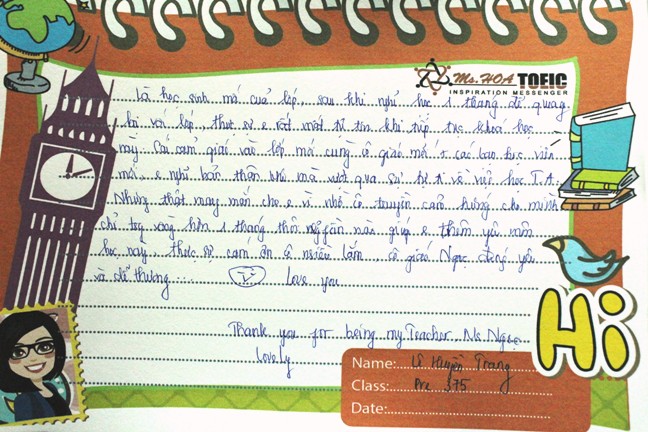 Ms. HOA TOEIC
INSPIRATION MESSENGER
Là học sinh mới của lớp, sau khi nghỉ học 1 tháng để quay
lại với lớp thực sự e rất mất tự tin khi tiếp tục khoá học
này. Cái cảm giác vào lớp mới cùng cô giáo mới + các bạn học viên
mới, e nghĩ bản thân khó mà vượt qua sự tự ti về việc học T.A
Nhưng thật may mắn cho e vì nhờ cô truyền cảm hứng cho mình
chỉ trg vòng hơn 1 tháng thôi giúp e thêm yêu môn
học này thực sự cảm ơn cô nhiều lắm cô giáo Ngọc đáng yêu
và dễ thương... Love you
Thank you for being my Teacher. Ms. Ngọc
lovely
Hi
Name: Lê Huyền Trang
Class: Pre 375
Date: